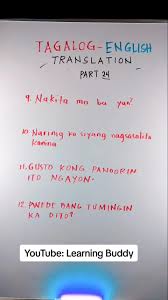 TAGALOG-ENGLISH
TRANSLATION
PART 24
9. Nakita mo ba yun?
10. Narinig ko siyang nagsasalita
kanina
11. GUSTO KONG PANOORIN
ITO NGAYON.
12. PWEDE BANG TUMINGIN
KA DITO?
YouTube: Learning Buddy